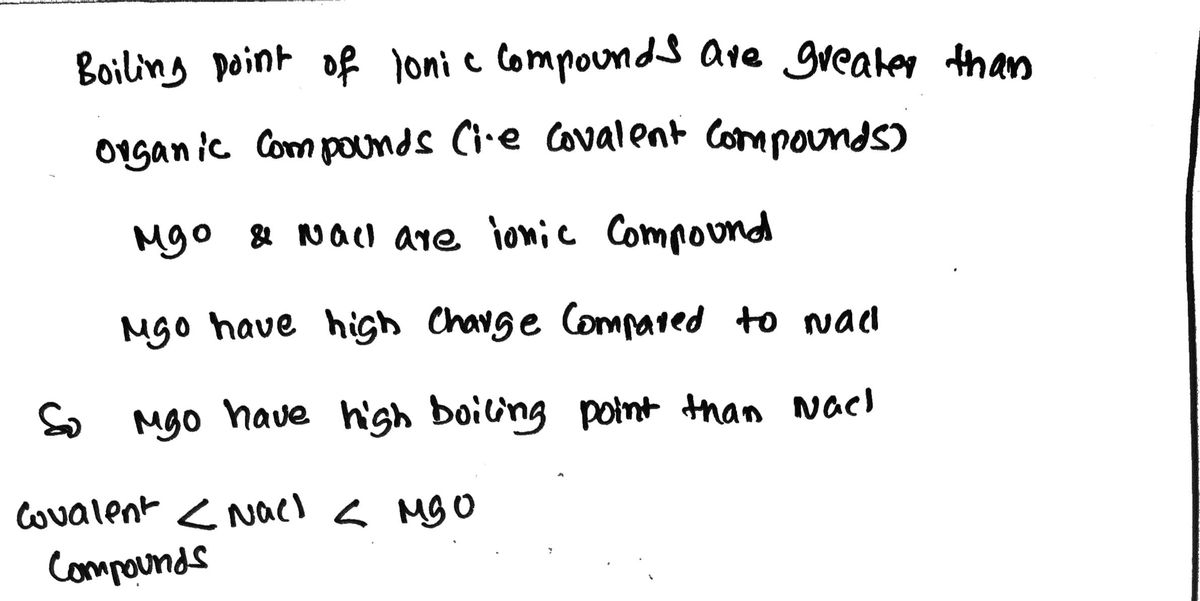 Boiling point of ionic compounds are greater than
organic compounds (i.e covalent compounds)
Mgo & Nacl are ionic compound
Mgo have high charge compared to Nacl
So Mgo have high boiling point than Nacl
Covalent < Nacl < MgO
Compounds